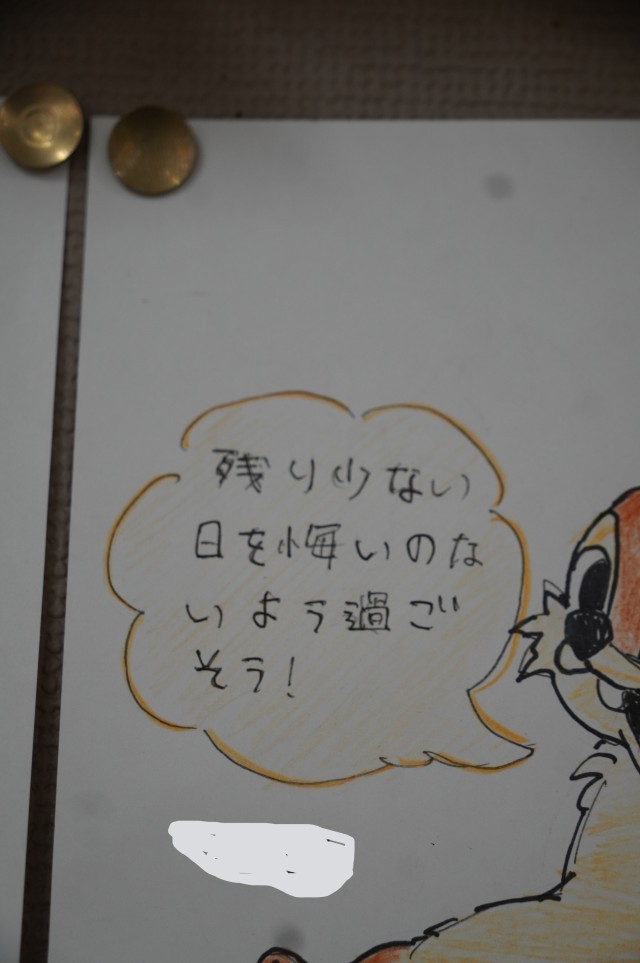 残り少ない
日を悔いのな
いよう過ご
そう!